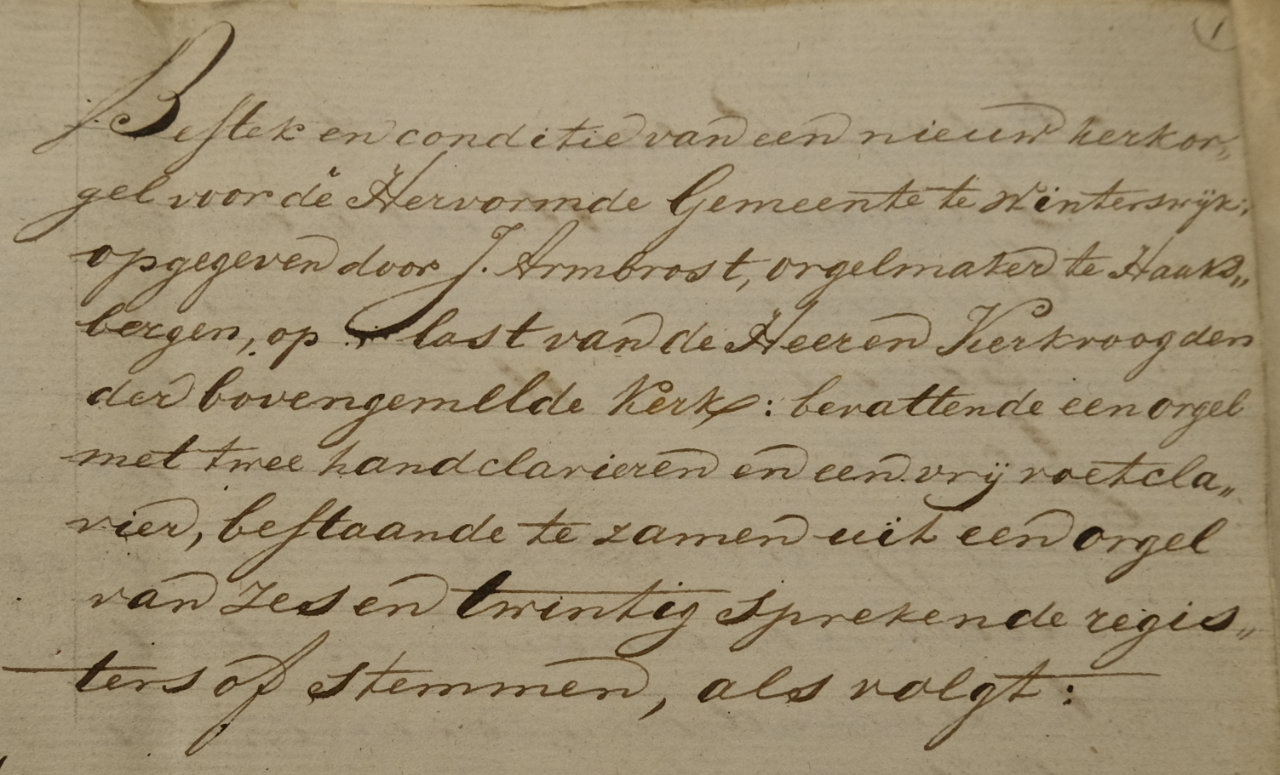 1
Bestek en conditie van een nieuw kerkor„
gel voor de Hervormde Gemeente te Winterswijk:
opgegeven door J. Armbrost, orgelmaker te Haaks„
bergen, op last van de Heeren Kerkvoogden
der bovengemelde Kerk: bevattende een orgel
met twee handclavieren en een vrij voetcla„
vier, bestaande te zamen uit een orgel
van zes en twintig sprekende regis„
ters of stemmen, als volgt: